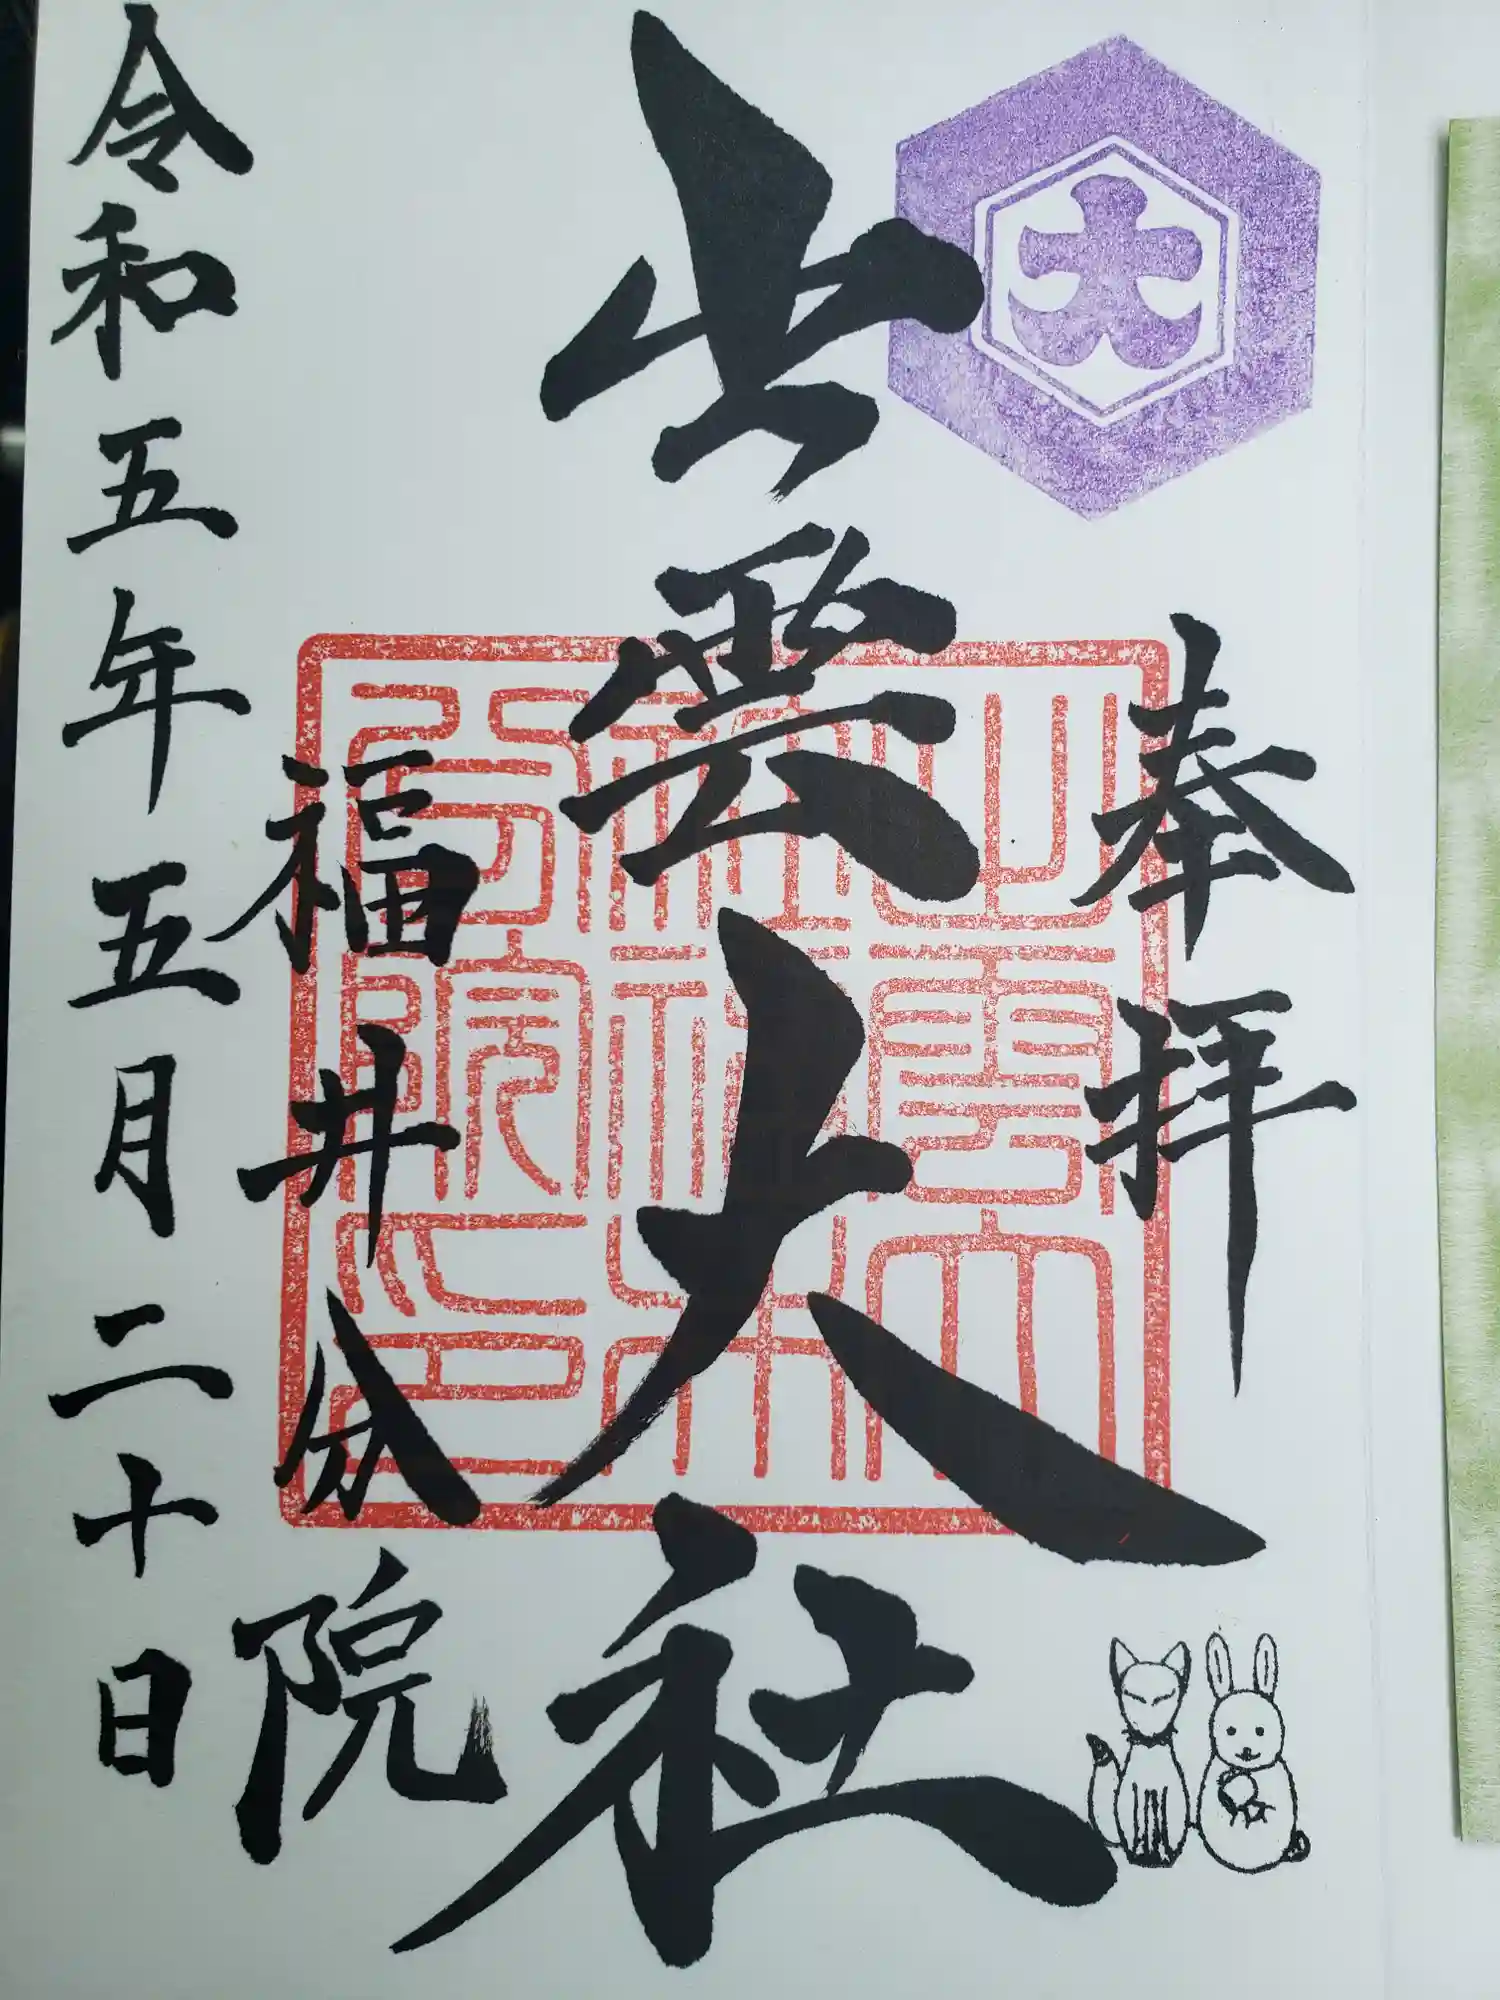 大
奉拝
出雲大社
出雲大社福井分院印
福井分院
令和五年五月二十日